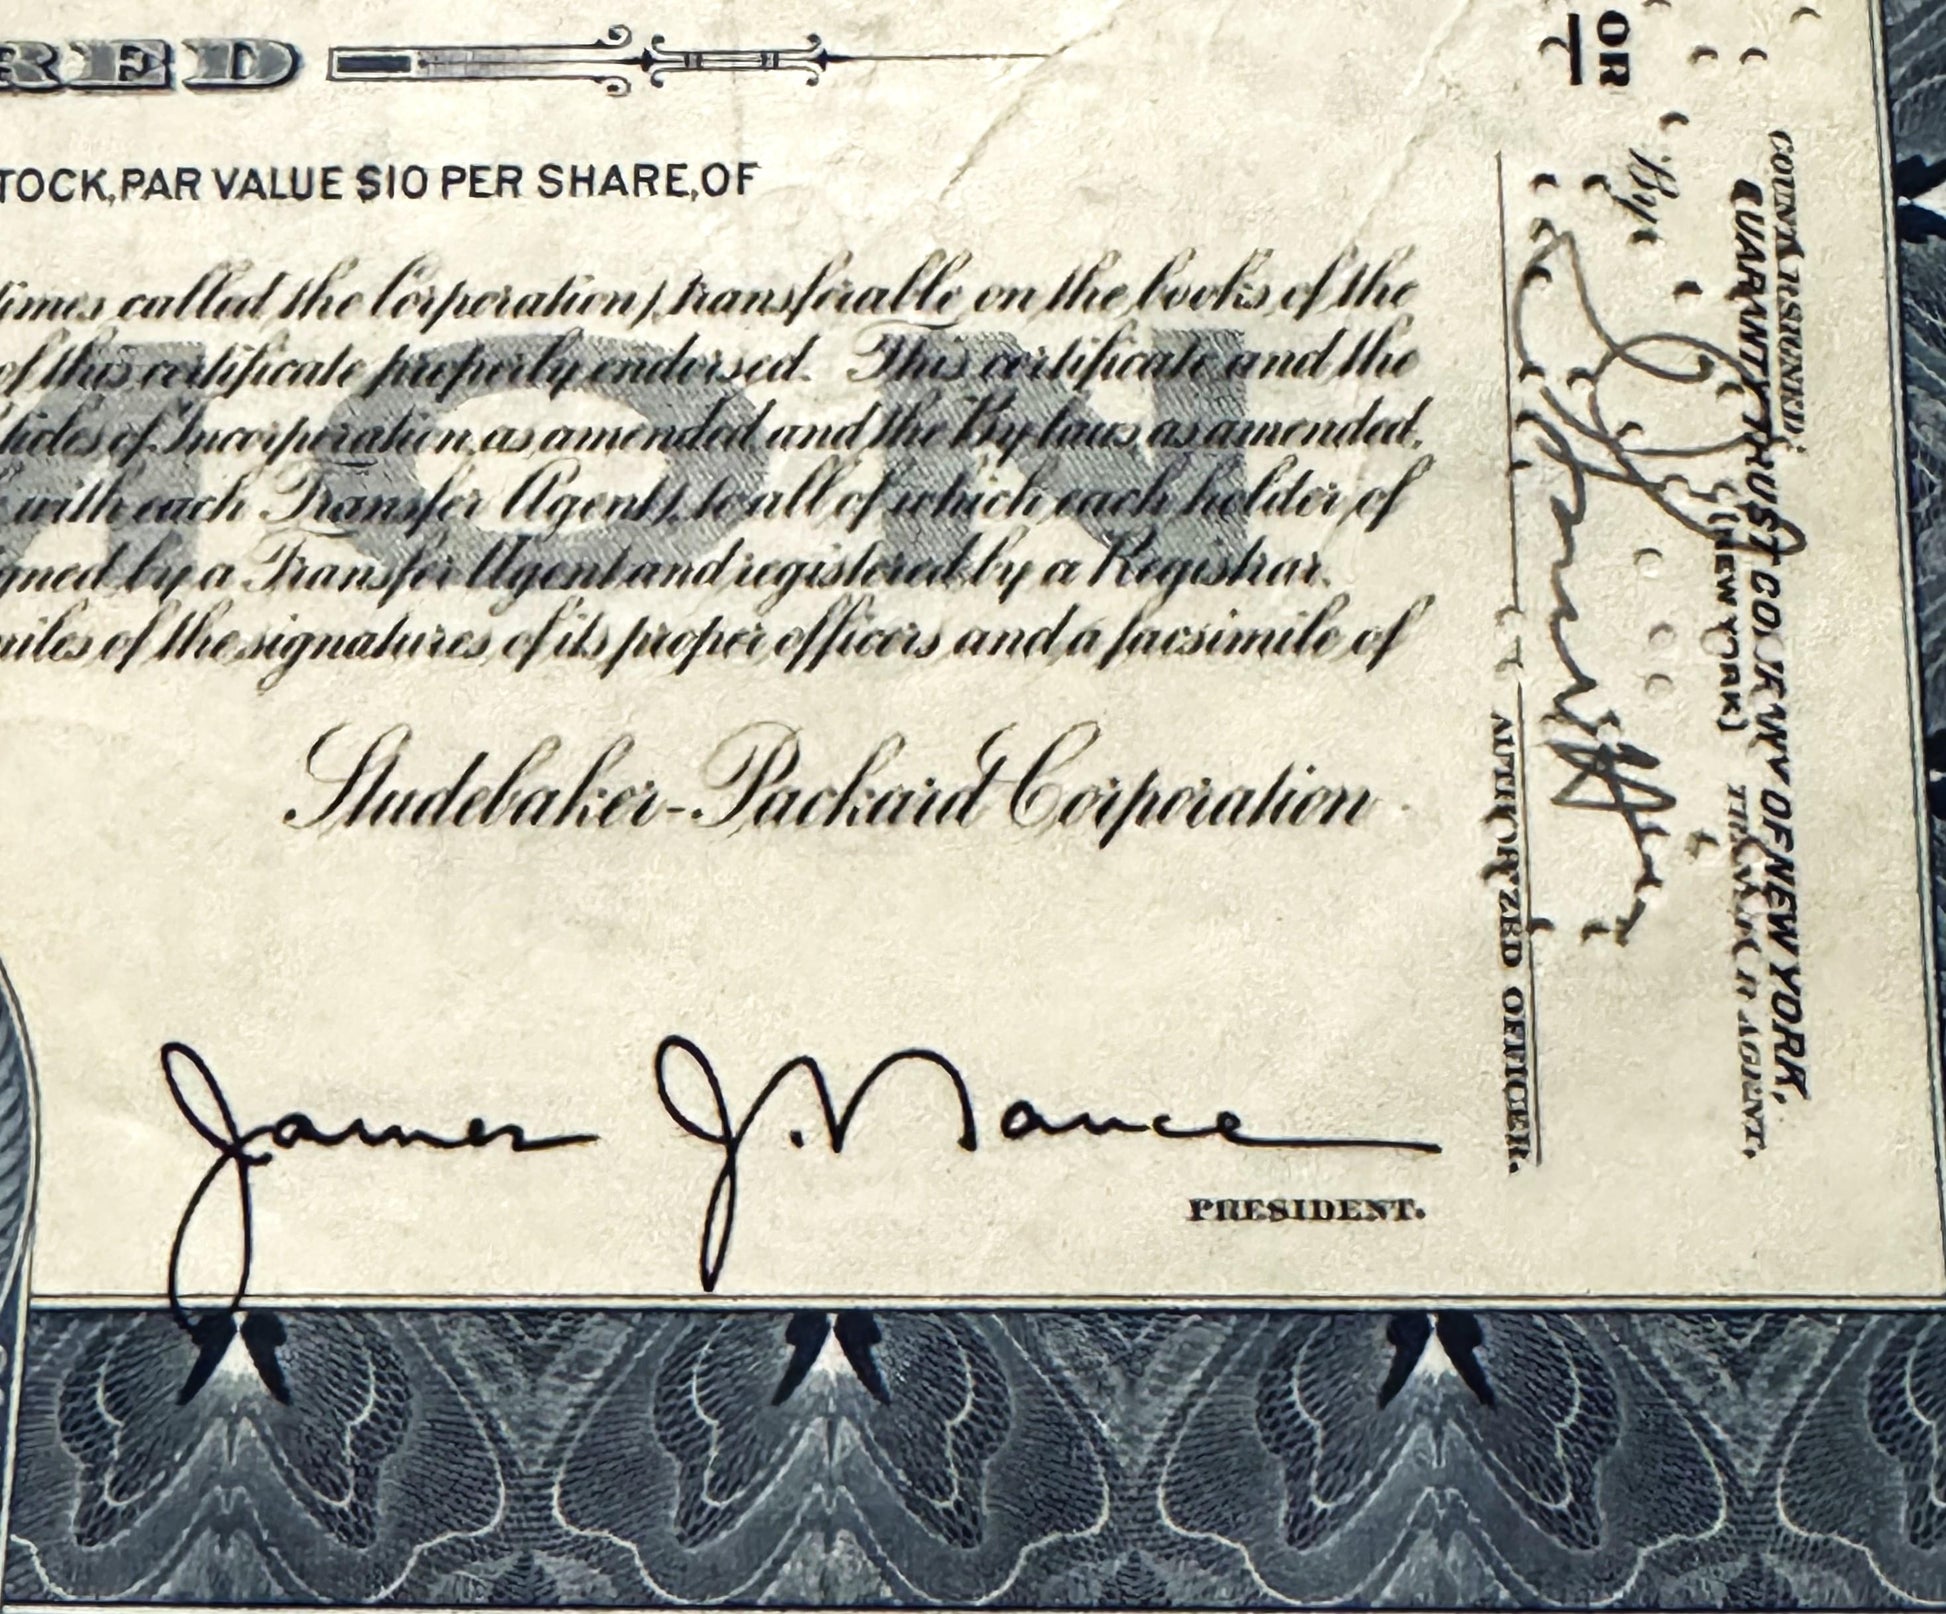 RED
TOCK, PAR VALUE $10 PER SHARE, OF
times called the Corporation) transferable on the books of the
of this certificate properly endorsed. This certificate and the
ticles of Incorporation, as amended, and the By laws, as amended,
with each Transfer Agent), to all of which each holder of
gned by a Transfer Agent and registered by a Registrar.
miles of the signatures of its proper officers and a facsimile of
MON
Studebaker-Packard Corporation
James J. Nance
PRESIDENT.
COUNTERSIGNED:
GUARANTY TRUST COMPANY OF NEW YORK,
(NEW YORK) TRANSFER AGENT.
OR
By
AUTHORIZED OFFICER.